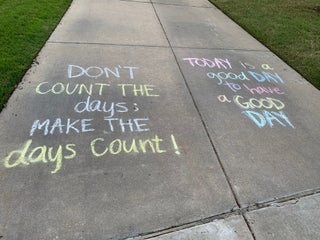 DON'T
COUNT THE
days;
MAKE THE
days Count!
TODAY is a
good DAY
to have
a GOOD
DAY